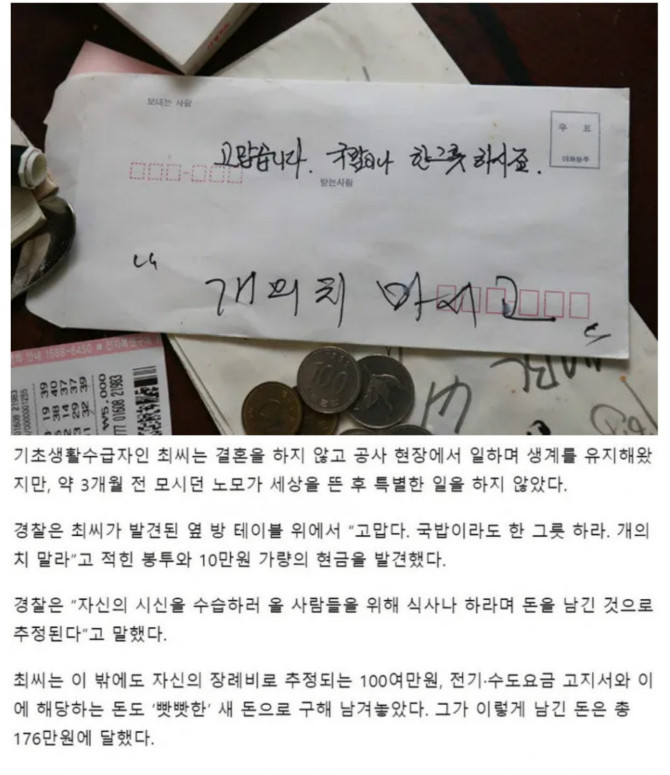 보내는 사람
우 표
고맙습니다. 국밥이나 한그릇 하시죠.
받는사람
"개의치 마시고"
100
기초생활수급자인 최씨는 결혼을 하지 않고 공사 현장에서 일하며 생계를 유지해왔
지만, 약 3개월 전 모시던 노모가 세상을 뜬 후 특별한 일을 하지 않았다.
경찰은 최씨가 발견된 옆 방 테이블 위에서 “고맙다. 국밥이라도 한 그릇 하라. 개의
치 말라”고 적힌 봉투와 10만원 가량의 현금을 발견했다.
경찰은 “자신의 시신을 수습하러 올 사람들을 위해 식사나 하라며 돈을 남긴 것으로
추정된다”고 말했다.
최씨는 이 밖에도 자신의 장례비로 추정되는 100여만원, 전기·수도요금 고지서와 이
에 해당하는 돈도 ‘빳빳한’ 새 돈으로 구해 남겨놓았다. 그가 이렇게 남긴 돈은 총
176만원에 달했다.